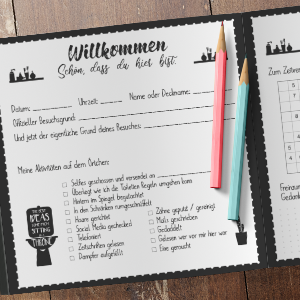 Willkommen
Schön, dass du hier bist.
Datum: Uhrzeit: Name oder Deckname:
Offizieller Besuchsgrund:
Und jetzt der eigentliche Grund deines Besuches:
Meine Aktivitäten auf dem Örtchen:
Selfies geschossen und versendet an
Überlegt wie ich die Toiletten Regeln umgehen kann
Hintern im Spiegel begutachtet
In den Schränken rumgeschnüffelt
Haare gerichtet
Social Media gecheckt
Telefoniert
Zeitschriften gelesen
Dampfer aufgefüllt
Zähne geputzt / gereinigt
Mails geschrieben
Gedaddelt
Gelesen wer vor mir hier war
Eine geraucht
IDEAS
SITTING
THRONE
Zum Zeitver